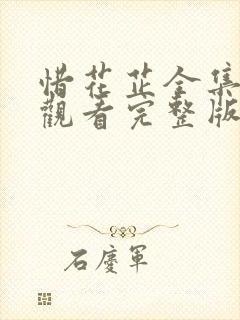 惜花芷全集
觀看完整版
石慶軍